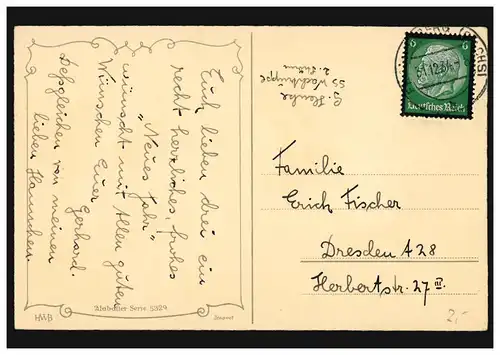 Euch lieben drei ein
recht herzliches, frohes
„Neues Jahr"
wünscht mit allen guten
Wünschen Euer
Gerhard.
Desgleichen von meinen
lieben Hannchen.
HWB
Alabaster Serie 5329
G. Henke
SS Wachtruppe
31.12.34.-7
6
Deutsches Reich
Familie
Erich Fischer
Dresden A 28
Herbertstr. 27 III.
2,-